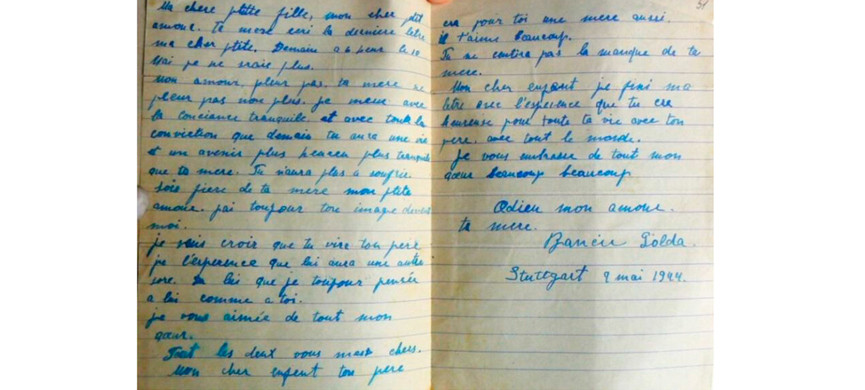 Ma chere ptite fille, mon cher ptit
amour. Ta mere ecri la derniere letre
ma cher ptite. Demain a 6 heure le 10
Mai je ne serais plus.
Mon amour, pleur pas, ta mere ne
pleur pas non plus. je meure avec
la conciance tranquile et avec toute la
conviction que demain tu aura une vie
et un avenir plus heureu plus tranquile
que ta mere. Tu n'aura plus a soufrire.
Sois fiere de ta mere mon ptite
amour. j'ai toujour ton image devent
moi.
je vais croir que tu vera ton pere
je l'experence que lui aura une autre
sore. Di lui que je toujour pensée
a lui comme a toi.
je vous aimée de tout mon
gœur.
Tout les deux vous maité chers.
Mon cher enfent ton pere
51
era pour toi une mere aussi.
il t'aime beaucoup.
Tu ne sentira pas la manque de ta
mere.
Mon cher enfant je fini ma
letre avec l'esperence que tu era
heureuse pour toute ta vie avec ton
pere, avec tout le monde.
Je vous embrasse de tout mon
gœur beaucoup beaucoup
Adieu mon amour.
ta mere.
Bancic Golda.
Stuttgart 9 mai 1944.